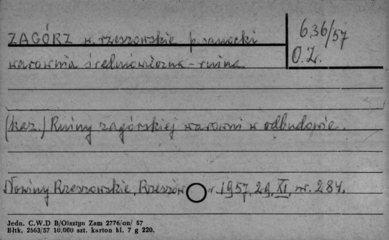 ZAGÓRZ w. rzeszowskie p. sanocki
636/57
O.Z.
warownia średniowieczna - ruina
(kaz.) Ruiny zagórskiej warowni w odbudowie.
Nowiny Rzeszowskie, Rzeszów r. 1957, 29, XI, nr. 284.
Jedn. C.W.D B/Olsztyn Zam 2776/on/ 57
Bltk. 2563/57 10.000 szt. karton kl. 7 g 220.